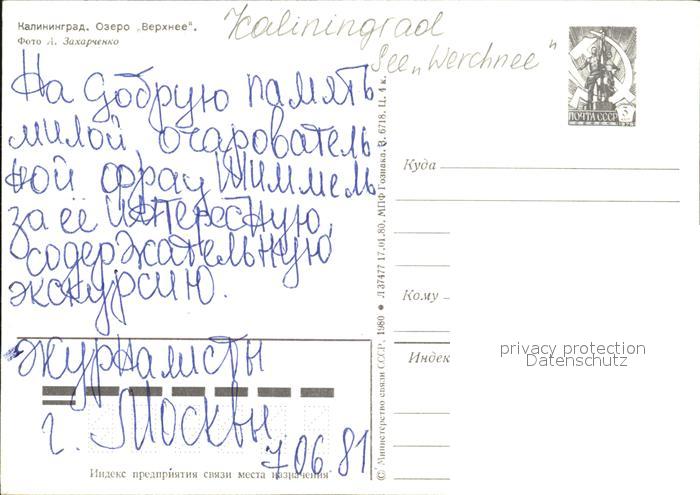 Калининград. Озеро „Верхнее".
Фото А. Захарченко
Kaliningrad
See „Werchnee"
На добрую память
милой, очарователь
ной фрау Шиммель
за её интересную,
содержательную
экскурсию.
Журналисты
г. Москвы.
7.06.81
ПОЧТА СССР
Куда
Кому
Индек
privacy protection
Datenschutz
Индекс предприятия связи места назначения
© Министерство связи СССР, 1980 • Л 37477 17.01.80. МПФ Гознака. З. 6718. Ц. 4 к.